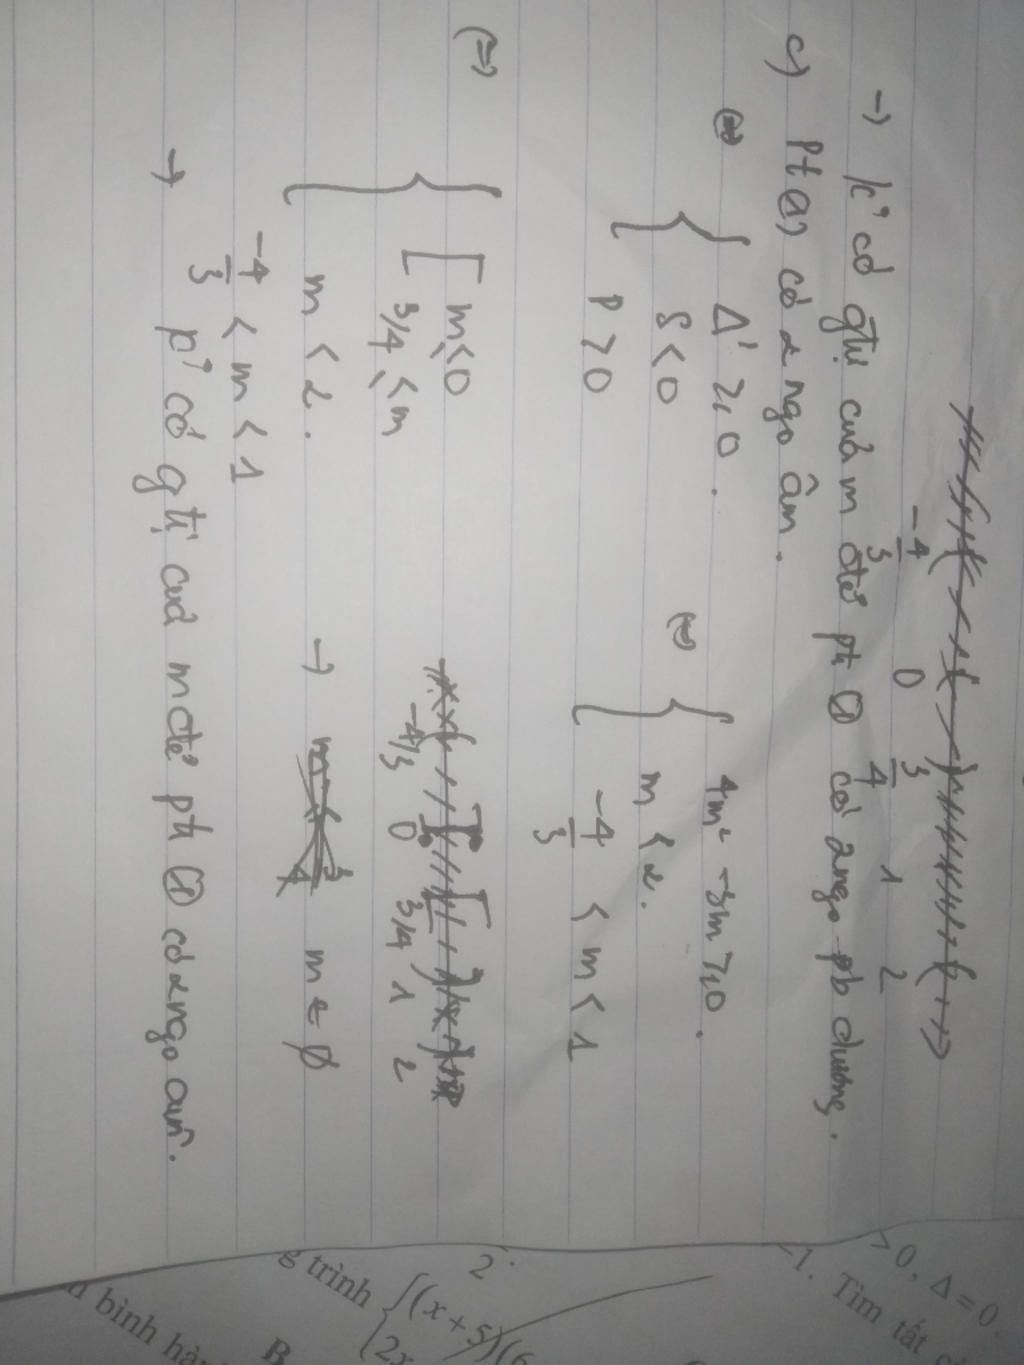 -4/3 0 3/4 1 2
→ k° có gtrị của m để pt ① có 2 ngo pb dương.
c) Pt (1) có 2 ngo âm.
⇔ { Δ' ≥ 0.
S < 0
P > 0
⇔ { 4m² - 3m ≥ 0.
m < 2.
-4/3 < m < 1
⇔ { [ m ≤ 0
3/4 ≤ m
m < 2.
-4/3 < m < 1
-4/3 0 3/4 1 2
→ m ∈ ∅
→ k° có gtrị của m để pt ① có 2 ngo âm.
> 0, Δ = 0.
-1. Tìm tất
2.
g trình { (x + 5)(6
2x
B.
bình hà